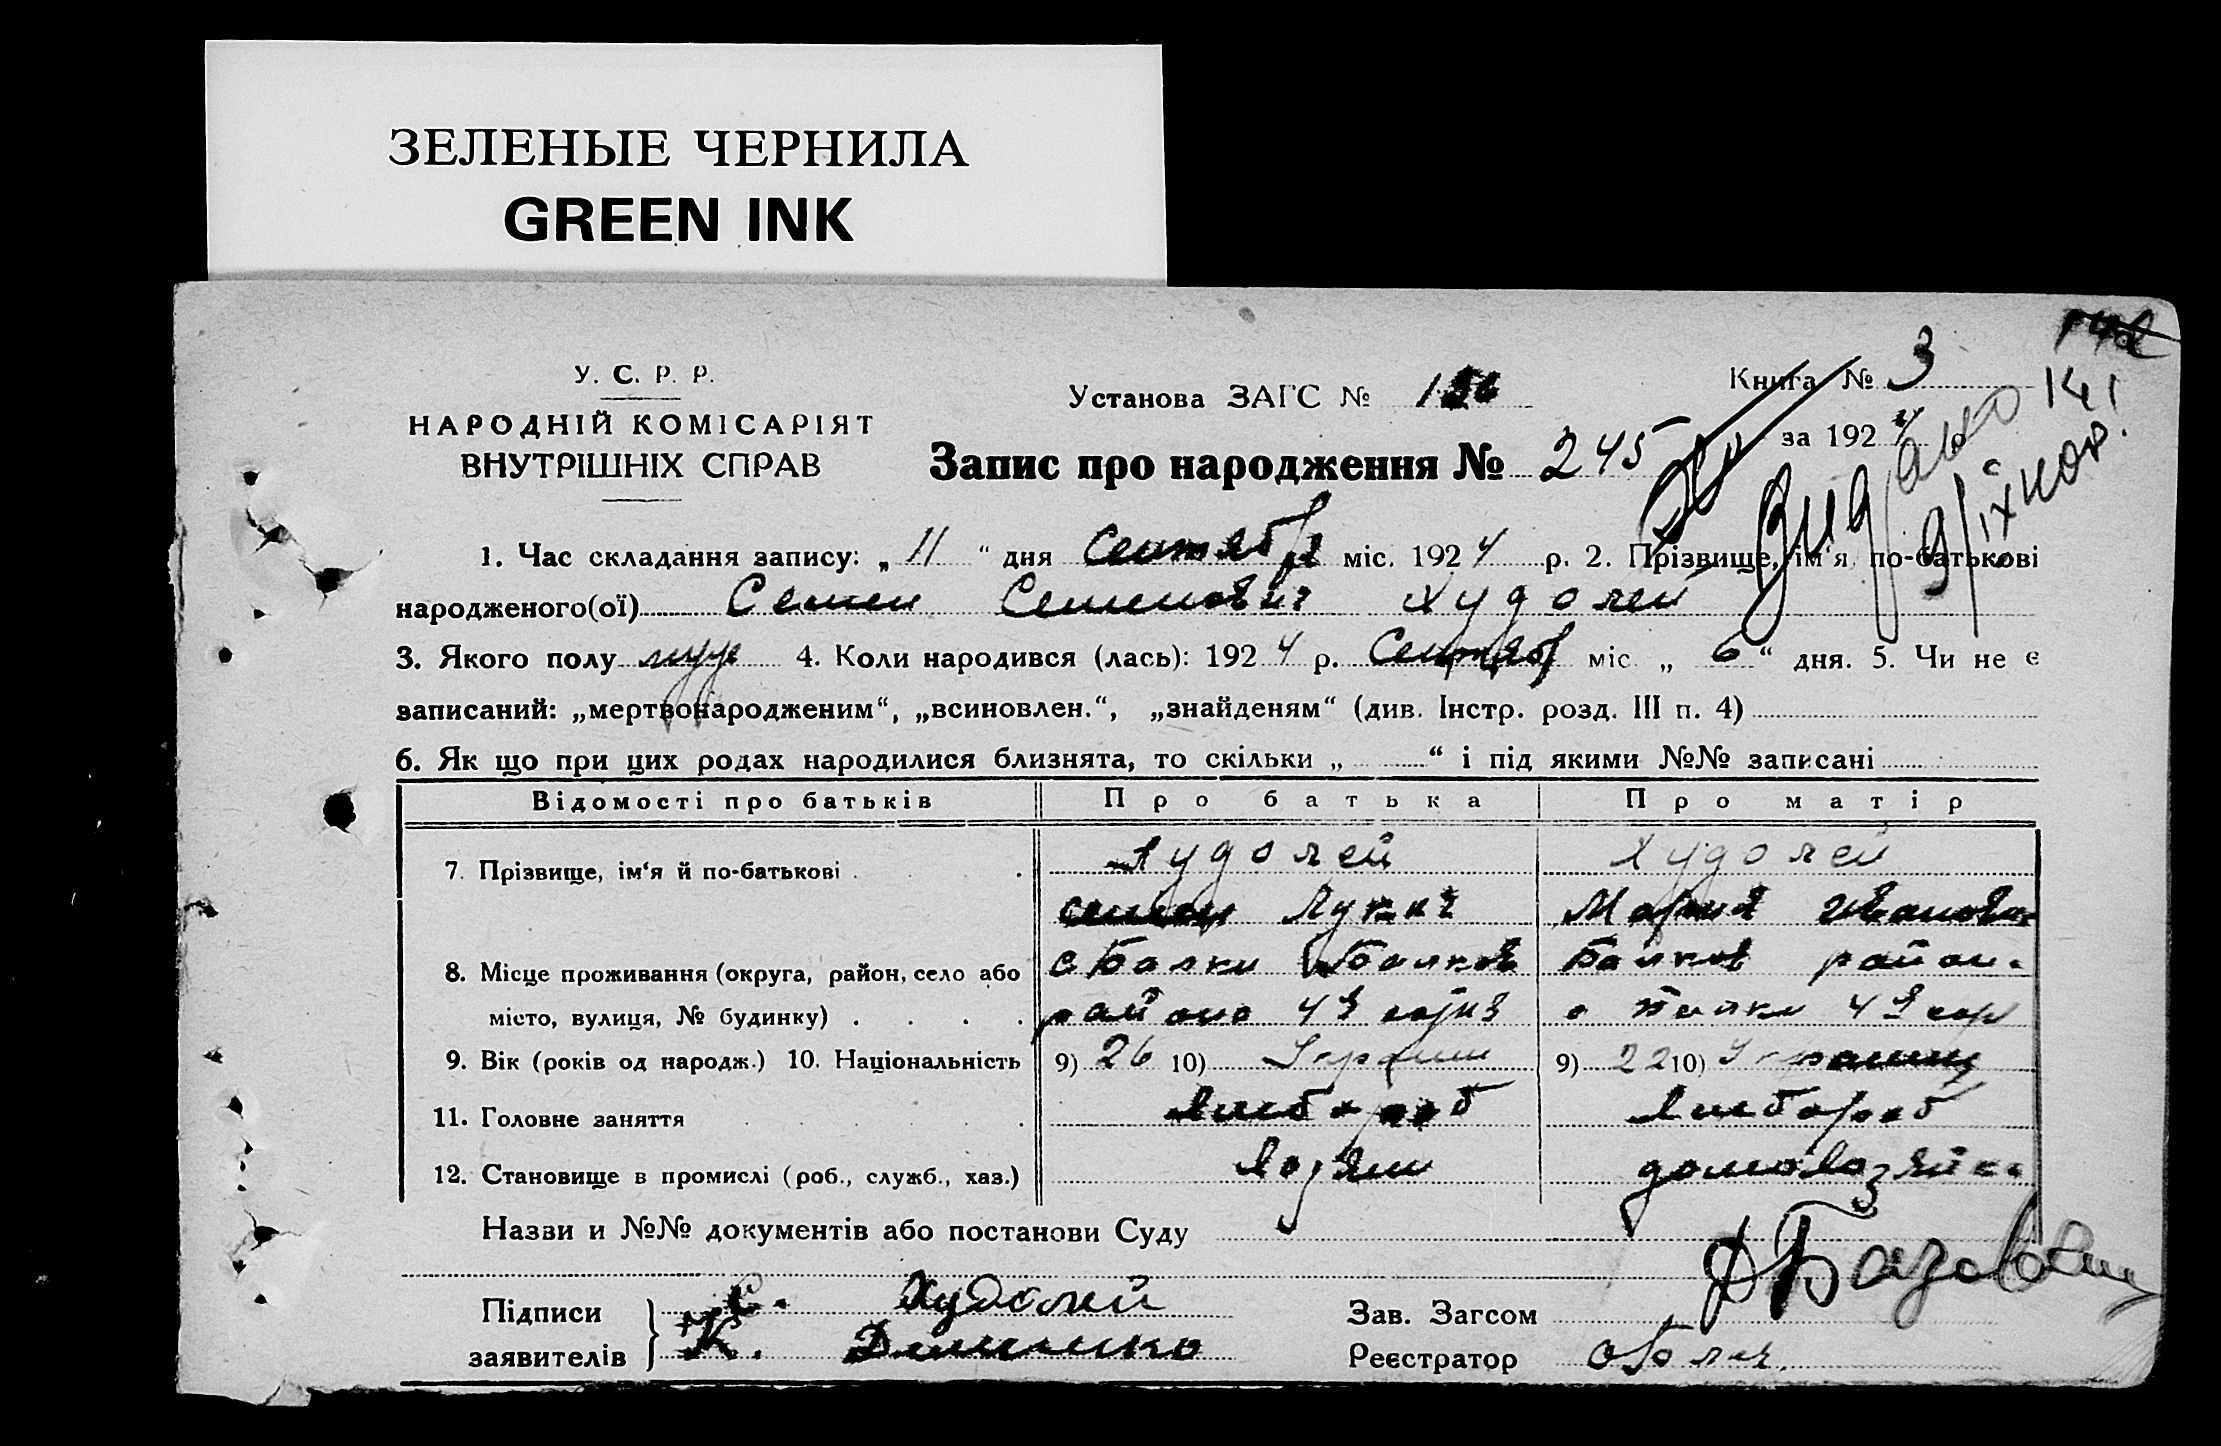 ЗЕЛЕНЫЕ ЧЕРНИЛА
GREEN INK
У. С. Р. Р.
НАРОДНІЙ КОМІСАРІЯТ
ВНУТРІШНІХ СПРАВ
Установа ЗАГС №
Книга № 3
141
за 1924
Запис про народження № 245
Видано
1. Час складання запису: „ 11 “ дня Сентября міс. 1924 р. 2. Прізвище, ім‘я, по-батькові
народженого(ої) Семен Семенович Худолей
3. Якого полу муж 4. Коли народився (лась): 1924 р. Сентяб міс. „ 6 “ дня. 5. Чи не є
записаний: „мертвонародженим“, „всиновлен.“, „знайденям“ (див. Інстр. розд. III п. 4)
6. Як що при цих родах народилися близнята, то скільки „ “ і під якими №№ записані
Відомості про батьків Про батька Про матір
7. Прізвище, ім‘я й по-батькові Худолей Худолей
Семен Лукич Мария Иванов
8. Місце проживання (округа, район, село або с Балки Балков Балков район
місто, вулиця, № будинку) района
9. Вік (років од народж.) 10. Національність 9) 26 10) Украин 9) 22 10) Украинц
11. Головне заняття хлебороб хлебороб
12. Становище в промислі (роб., служб., хаз.) хозяин домохозяйка
Назви и №№ документів або постанови Суду
Підписи С. Худолей Зав. Загсом
заявителів К. Реєстратор